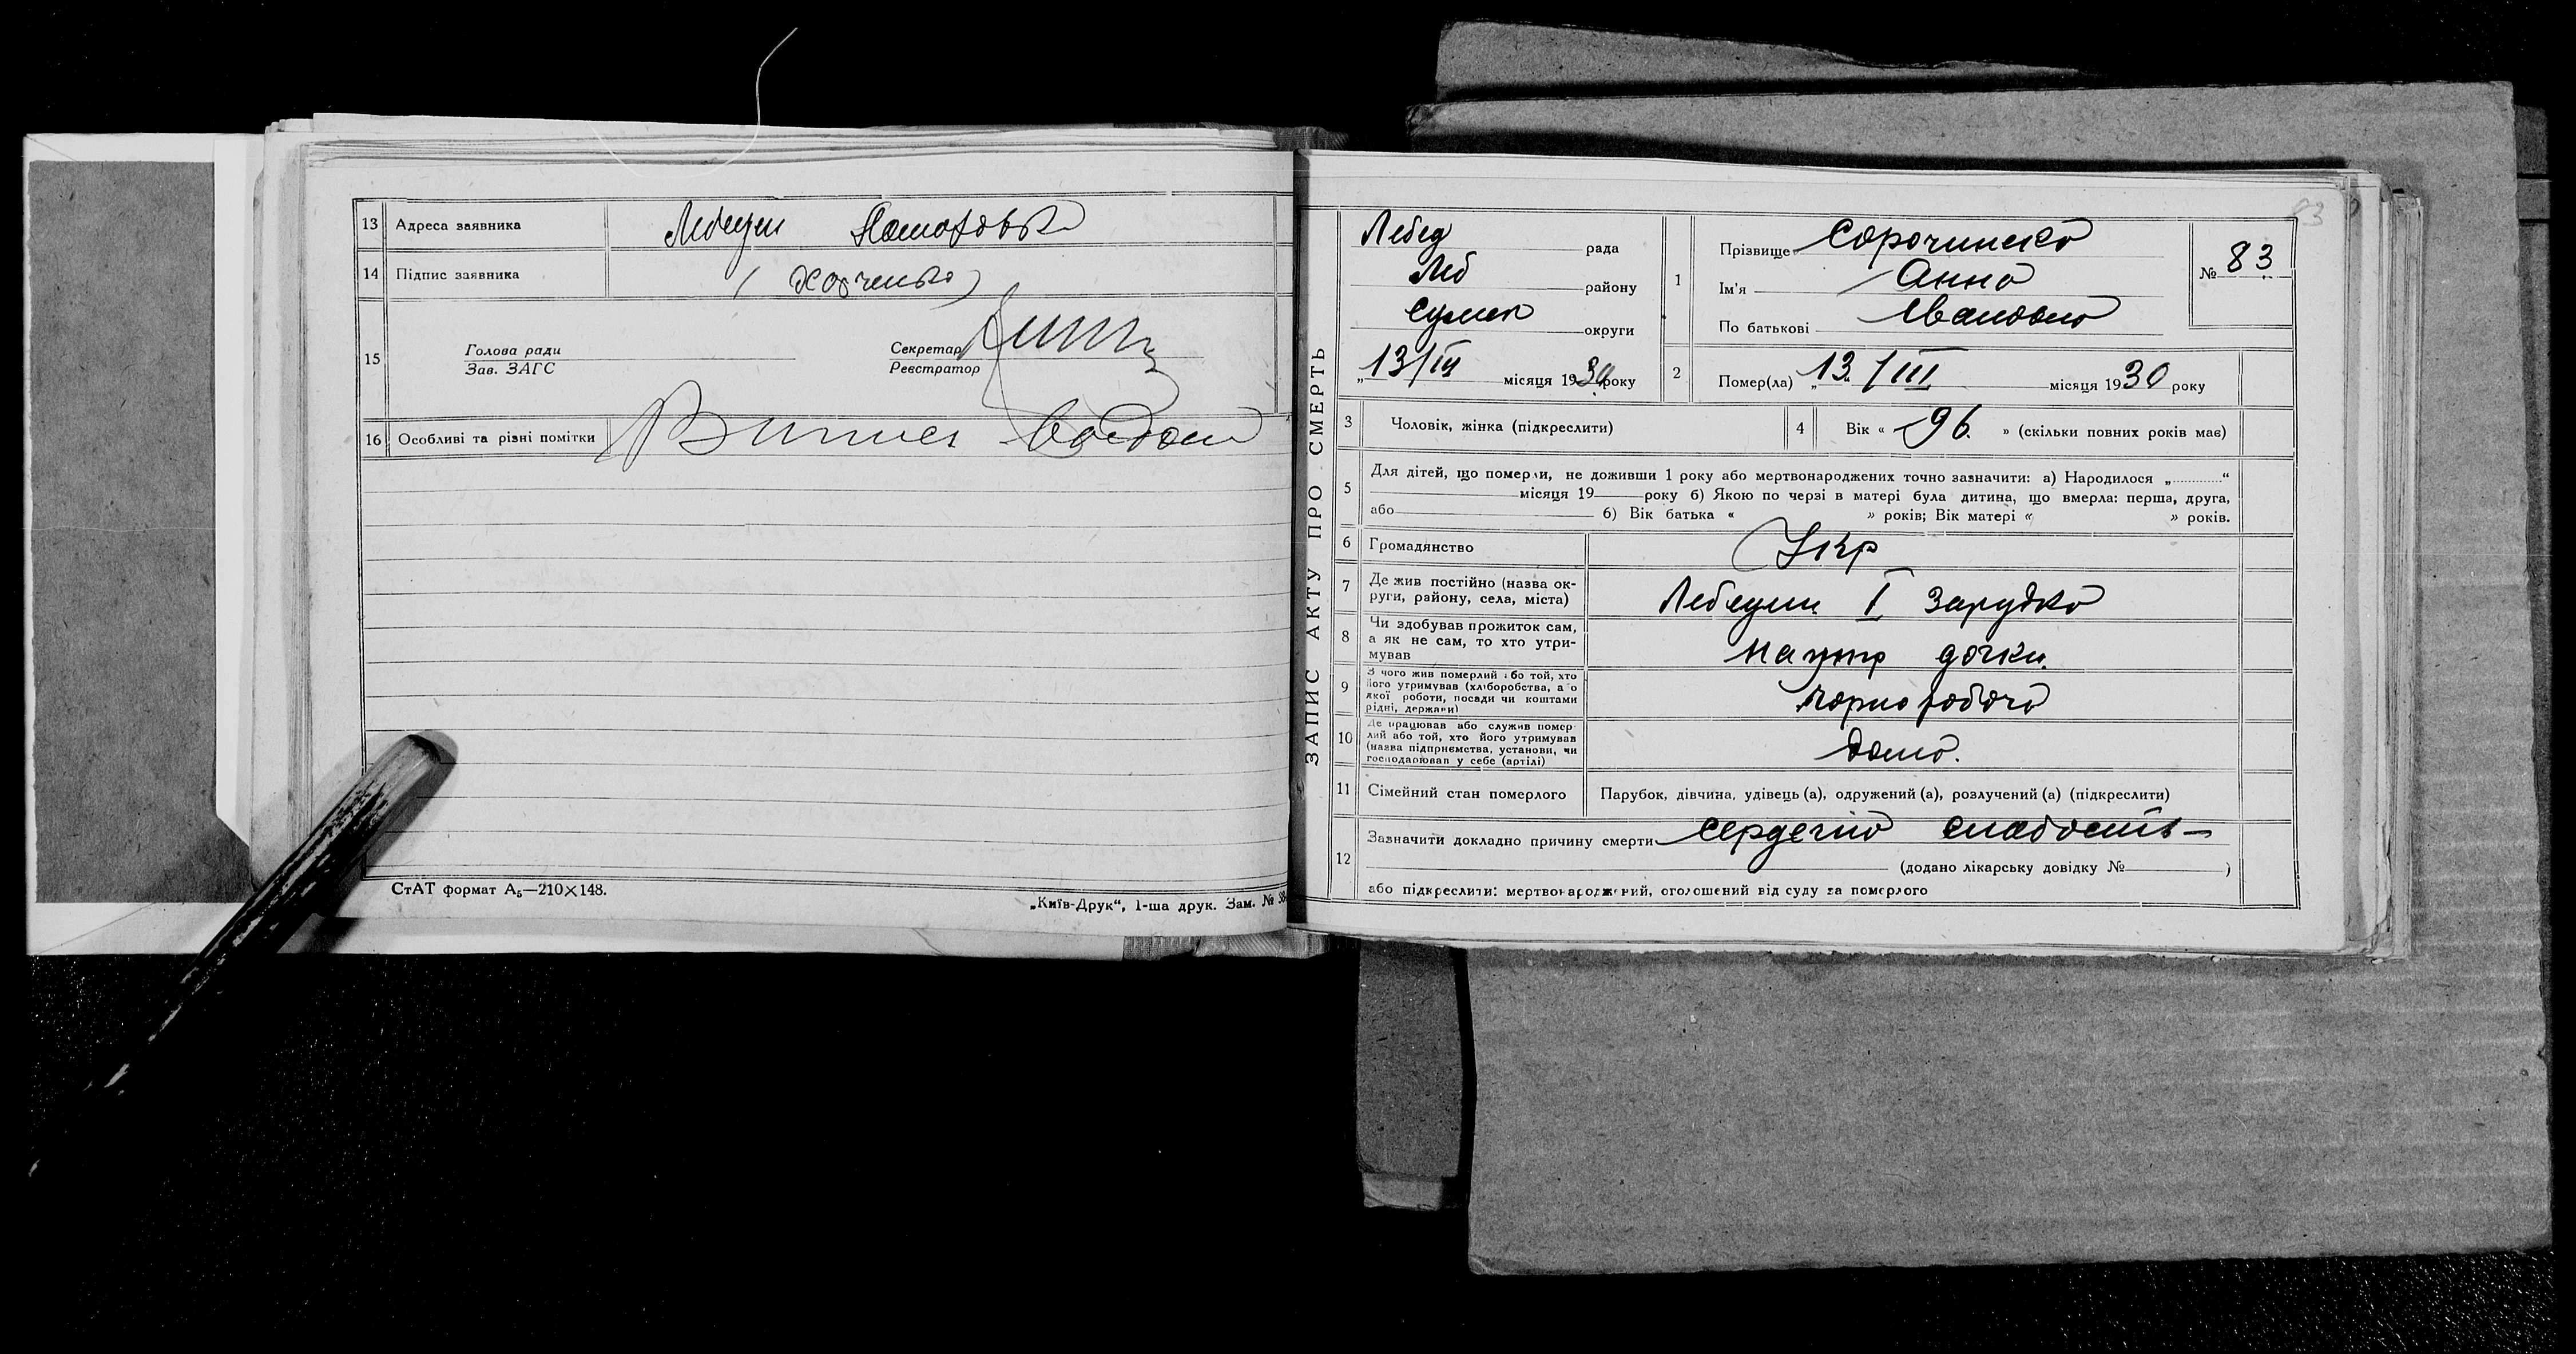 13 Адреса заявника Лебедин
14 Підпис заявника
15 Голова ради Секретар
Зав. ЗАГС Реєстратор
16 Особливі та різні помітки
СтАТ формат А5—210×148.
„Київ-Друк“, 1-ша друк. Зам. №
83
ЗАПИС АКТУ ПРО СМЕРТЬ
Лебед рада
Леб району
Сумск округи
„13/III місяця 1930 року
1 Прізвище Сорочинска
Ім'я Анна
По батькові Івановна
№ 83
2 Помер(ла) „13“ /III місяця 1930 року
3 Чоловік, жінка (підкреслити)
4 Вік « 96 » (скільки повних років має)
5 Для дітей, що померли, не доживши 1 року або мертвонароджених точно зазначити: а) Народилося „ “
місяця 19 року б) Якою по черзі в матері була дитина, що вмерла: перша, друга,
або б) Вік батька « » років; Вік матері « » років.
6 Громадянство Укр
7 Де жив постійно (назва ок-
руги, району, села, міста) Лебедин I Зарудка
8 Чи здобував прожиток сам,
а як не сам, то хто утри-
мував На утр дочки.
9 З чого жив померлий або той, хто
його утримував (хліборобства, або
якої роботи, посади чи коштами
рідні, держави) чорноробоча
10 Де працював або служив помер
лий або той, хто його утримував
(назва підприємства, установи, чи
господарював у себе (артілі) дома.
11 Сімейний стан померлого Парубок, дівчина, удівець (а), одружений (а), розлучений (а) (підкреслити)
12 Зазначити докладно причину смерти сердечна слабость
(додано лікарську довідку № )
або підкреслити: мертвонароджений, оголошений від суду за померлого